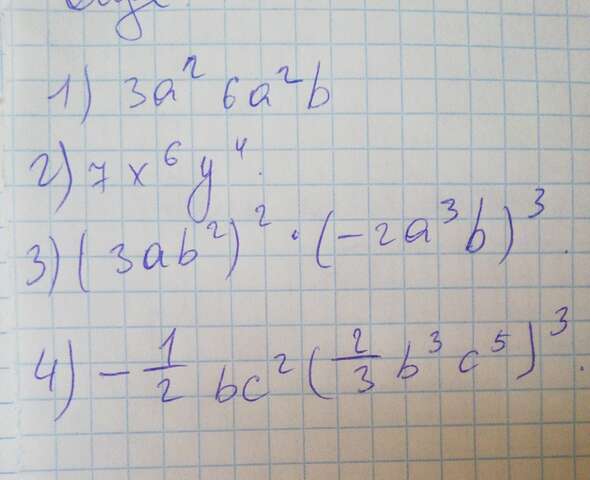 1) 3a² 6a²b
2) 7x⁶y⁴.
3) (3ab²)² · (-2a³b)³.
4) -1/2 bc² (2/3 b³ c⁵)³.